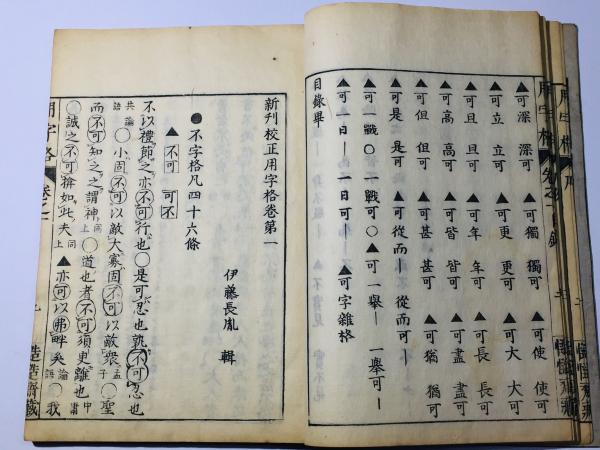 ▲可深 深可 ▲可獨 獨可 ▲可使 使可
▲可立 立可 ▲可更 更可 ▲可大 大可
▲可且 且可 ▲可年 年可 ▲可長 長可
▲可高 高可 ▲可皆 皆可 ▲可盡 盡可
▲可但 但可 ▲可甚 甚可 ▲可猶 猶可
▲可是 是可 ▲可從而— 從而可—
▲可一戰〇 一戰可〇 ▲可一舉— 一舉可—
▲可一日— 一日可— ▲可字雜格
目錄畢
新刊校正用字格卷第一
伊藤長胤 輯
●不字格凡四十六條
▲不可 可不
不以禮節之亦不可行也〇是可忍也孰不可忍也
論語〇小固不可以敵大寡固不可以敵衆孟子〇聖
而不可知之之謂神同上〇道也者不可須更離也中庸
〇誠之不可揜如此夫同上▲亦可以弗畔矣論語〇我
用字格 卷之一
造造齋藏
用字格